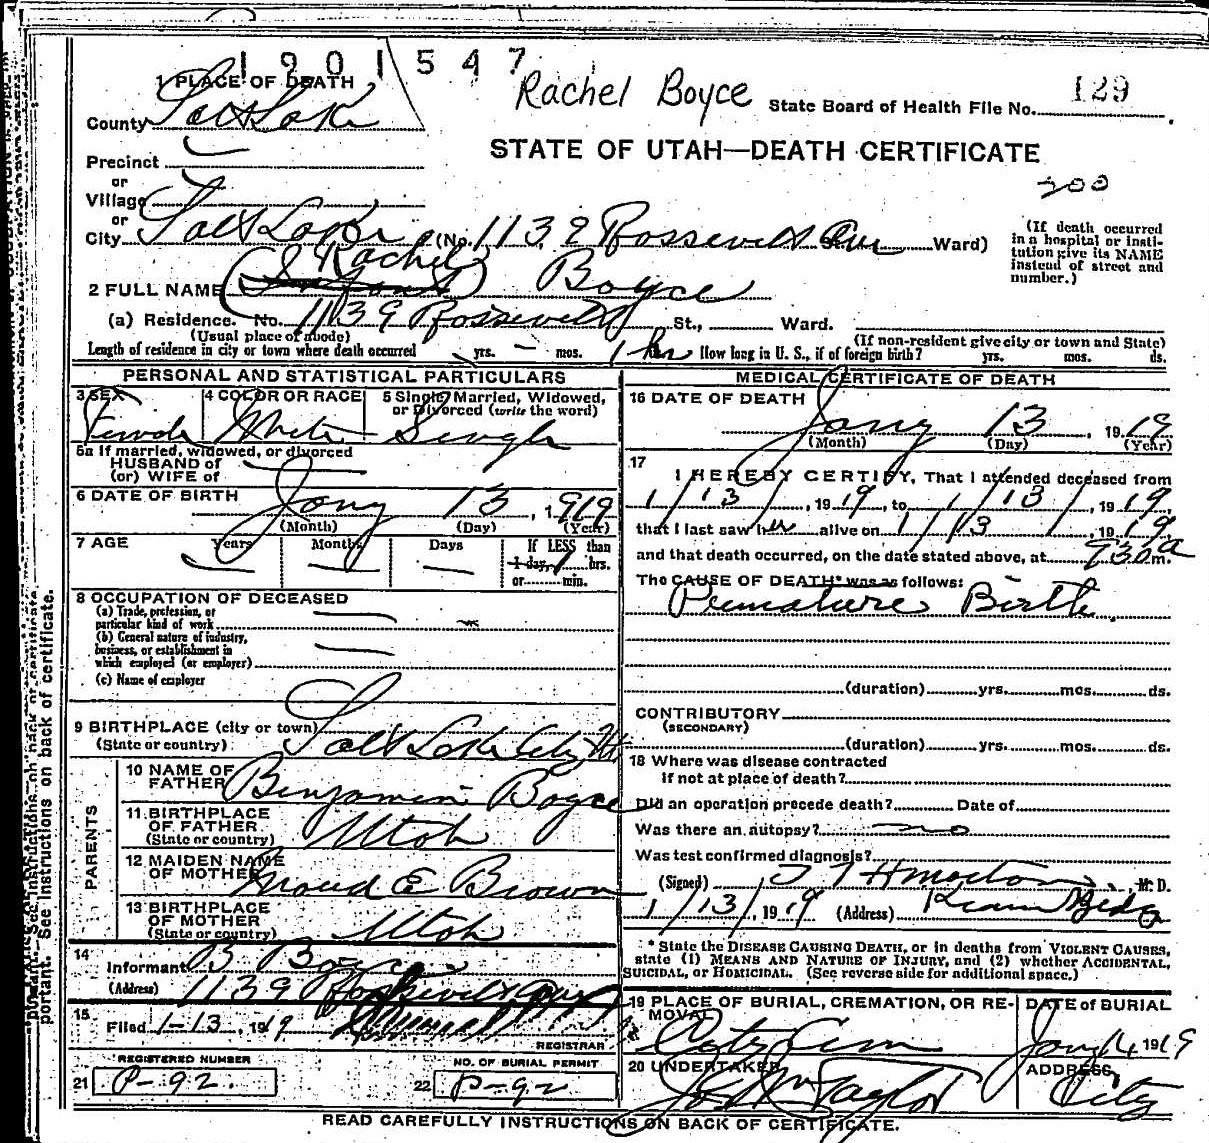 1901547
1 PLACE OF DEATH
Rachel Boyce
State Board of Health File No. 129
County Salt Lake
STATE OF UTAH—DEATH CERTIFICATE
Precinct
or
Village
200
or
City Salt Lake (No. 1139 Rossevelt Ave Ward)
(If death occurred in a hospital or institution give its NAME instead of street and number.)
Rachel
2 FULL NAME Boyce
(a) Residence. No. 1139 Rossevelt St., Ward.
(Usual place of abode)
(If non-resident give city or town and State)
Length of residence in city or town where death occurred yrs. mos. 1 hr How long in U. S., if of foreign birth? yrs. mos. ds.
PERSONAL AND STATISTICAL PARTICULARS
3 SEX Female
4 COLOR OR RACE White
5 Single, Married, Widowed, or Divorced (write the word) Single
5a If married, widowed, or divorced
HUSBAND of
(or) WIFE of
6 DATE OF BIRTH Jany 13, 1919
(Month) (Day) (Year)
7 AGE Years Months Days If LESS than
1 day, 1 hrs.
or min.
8 OCCUPATION OF DECEASED
(a) Trade, profession, or
particular kind of work
(b) General nature of industry,
business, or establishment in
which employed (or employer)
(c) Name of employer
9 BIRTHPLACE (city or town) Salt Lake City Ut
(State or country)
PARENTS
10 NAME OF FATHER Benjamin Boyce
11 BIRTHPLACE OF FATHER Utah
(State or country)
12 MAIDEN NAME OF MOTHER Maud E Brown
13 BIRTHPLACE OF MOTHER Utah
(State or country)
14 Informant B Boyce
(Address) 1139 Rossevelt Ave
15 Filed 1-13, 1919
REGISTRAR
REGISTERED NUMBER
21 P-92.
NO. OF BURIAL PERMIT
22 P-92
MEDICAL CERTIFICATE OF DEATH
16 DATE OF DEATH Jany 13, 1919
(Month) (Day) (Year)
17 I HEREBY CERTIFY, That I attended deceased from
1/13/, 1919, to 1/13/, 1919,
that I last saw her alive on 1/13, 1919,
and that death occurred, on the date stated above, at 930 a m.
The CAUSE OF DEATH* was as follows:
Premature Birth
(duration) yrs. mos. ds.
CONTRIBUTORY
(SECONDARY)
(duration) yrs. mos. ds.
18 Where was disease contracted
if not at place of death?
Did an operation precede death? Date of
Was there an autopsy? no
Was test confirmed diagnosis?
(Signed) M. D.
1/13/, 1919 (Address) Kearns Bldg
* State the DISEASE CAUSING DEATH, or in deaths from VIOLENT CAUSES,
state (1) MEANS AND NATURE OF INJURY, and (2) whether ACCIDENTAL,
SUICIDAL, or HOMICIDAL. (See reverse side for additional space.)
19 PLACE OF BURIAL, CREMATION, OR REMOVAL City Cem
DATE of BURIAL Jany 14, 1919
20 UNDERTAKER Jos Wm Taylor
ADDRESS City
READ CAREFULLY INSTRUCTIONS ON BACK OF CERTIFICATE.
portant. See instructions on back of certificate.